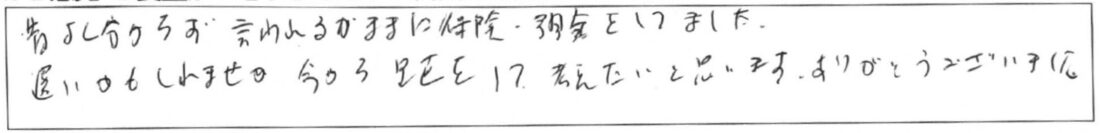 昔よく分からず 言われるがままに保険・預金をしてました.
遅いかもしれませんが 今から見直をして 考えたいと思います.ありがとうございました